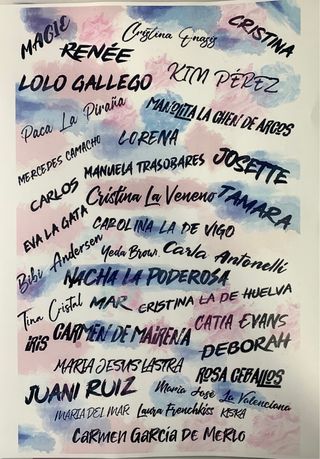 MAGIC
Cristina Onassis
CRISTINA
RENÉE
LOLO GALLEGO
KIM PÉREZ
Paca La Piraña
MANOLITA LA CHEN DE ARCOS
LORENA
MERCEDES CAMACHO
MANUELA TRASOBARES
JOSETTE
CARLOS
Cristina La Veneno
TAMARA
EVA LA GATA
CAROLINA LA DE VIGO
Bibi Andersen
Yeda Brown
Carla Antonelli
NACHA LA PODEROSA
Tina Cristal
MAR
CRISTINA LA DE HUELVA
IRIS
CARMEN DE MAIRENA
CATIA EVANS
DEBORAH
MARIA JESUS LASTRA
ROSA CEBALLOS
JUANI RUIZ
Maria José La Valenciana
MARIA DEL MAR
Laura Frenchkiss
KISKA
CARMEN GARCÍA DE MERLO